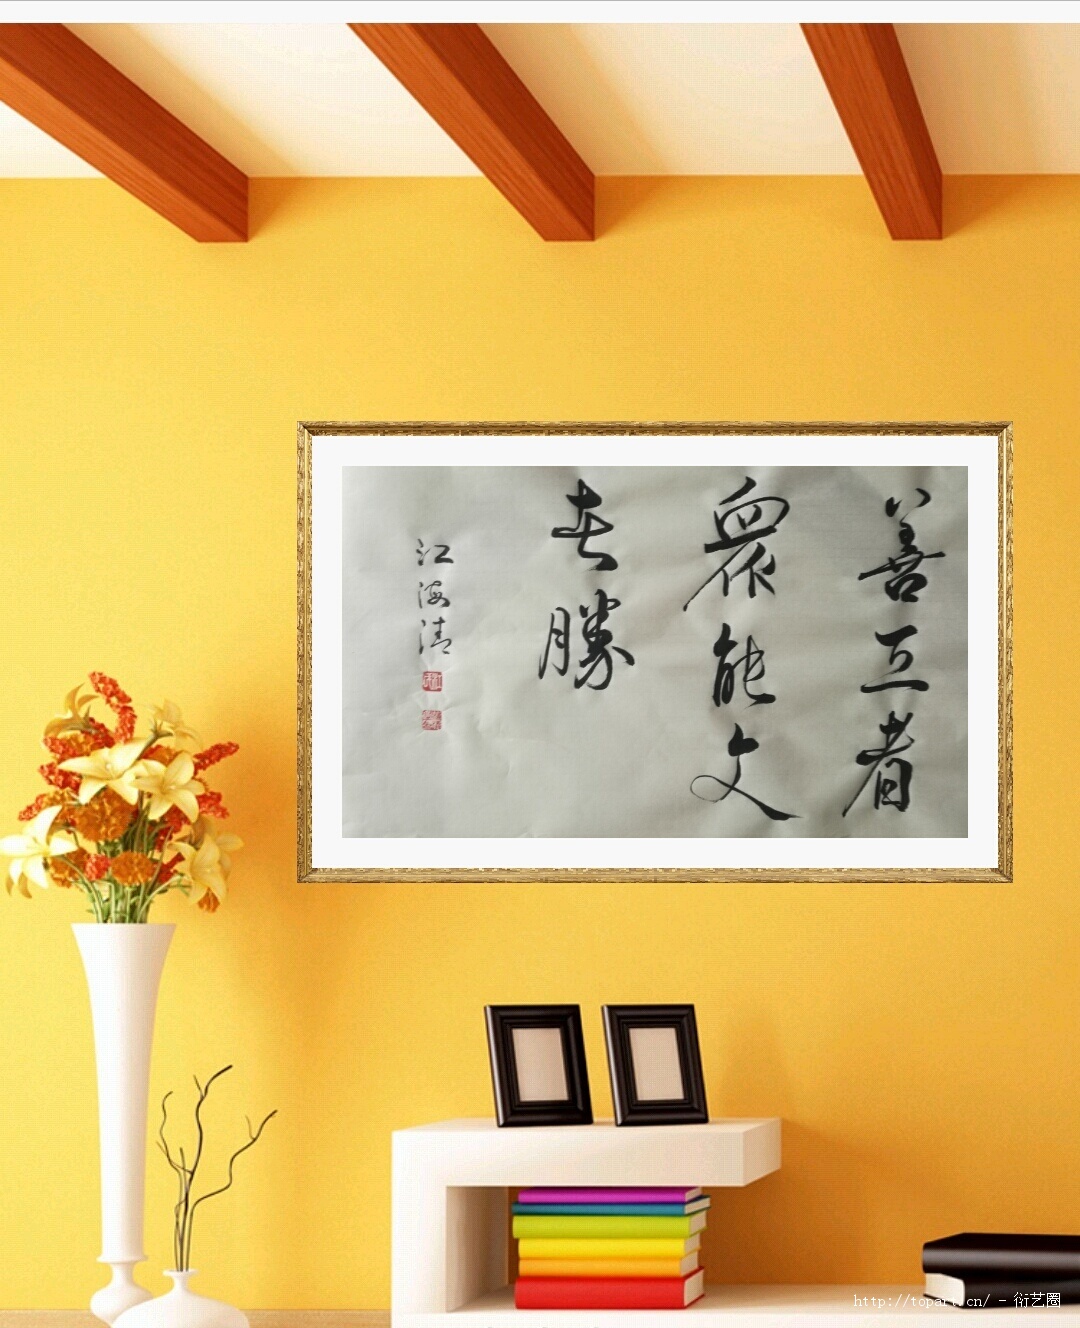 善互者
眾能文
勝
江海清
http://topart.cn/ - 衍艺圈